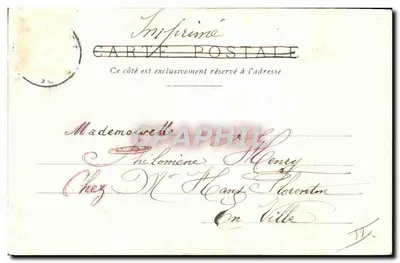 Imprimé
CARTE POSTALE
Ce côté est exclusivement réservé à l'adresse
Mademoiselle
Philomène Henry
Chez Mr Hans Florentin
En Ville